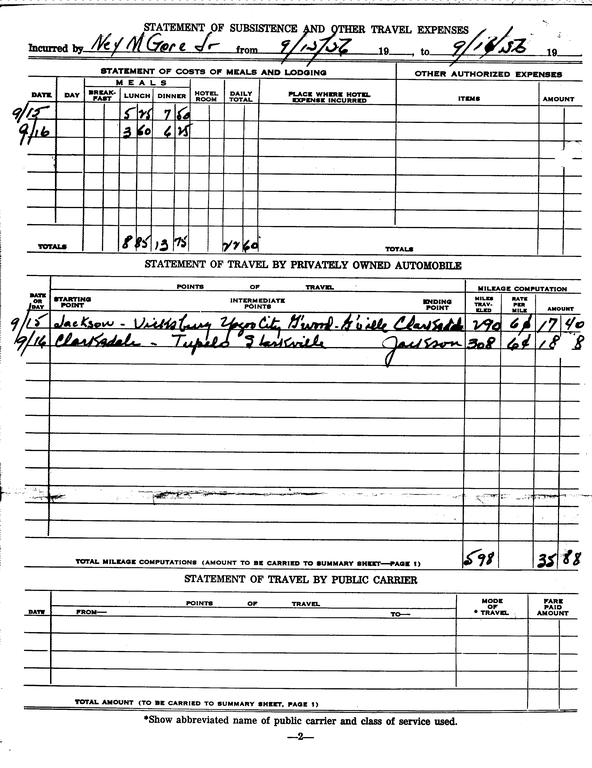 STATEMENT OF SUBSISTENCE AND OTHER TRAVEL EXPENSES
Incurred by Ney M Gore Jr from 9/15/56 19___, to 9/16/56 19___
STATEMENT OF COSTS OF MEALS AND LODGING OTHER AUTHORIZED EXPENSES
MEALS
DATE DAY BREAK-FAST LUNCH DINNER HOTEL ROOM DAILY TOTAL PLACE WHERE HOTEL EXPENSE INCURRED ITEMS AMOUNT
9/15 5 25 7 50
9/16 3 60 6 25
TOTALS 8 85 13 75 22 60 TOTALS
STATEMENT OF TRAVEL BY PRIVATELY OWNED AUTOMOBILE
POINTS OF TRAVEL MILEAGE COMPUTATION
DATE OR DAY STARTING POINT INTERMEDIATE POINTS ENDING POINT MILES TRAV-ELED RATE PER MILE AMOUNT
9/15 Jackson - Vicksburg Yazoo City G'wood - G'ville Clarksdale 290 6¢ 17 40
9/16 Clarksdale - Tupelo Starkville Jackson 308 6¢ 18 8
TOTAL MILEAGE COMPUTATIONS (AMOUNT TO BE CARRIED TO SUMMARY SHEET—PAGE 1) 598 35 88
STATEMENT OF TRAVEL BY PUBLIC CARRIER
POINTS OF TRAVEL MODE OF * TRAVEL FARE PAID AMOUNT
DATE FROM— TO—
TOTAL AMOUNT (TO BE CARRIED TO SUMMARY SHEET, PAGE 1)
*Show abbreviated name of public carrier and class of service used.
—2—